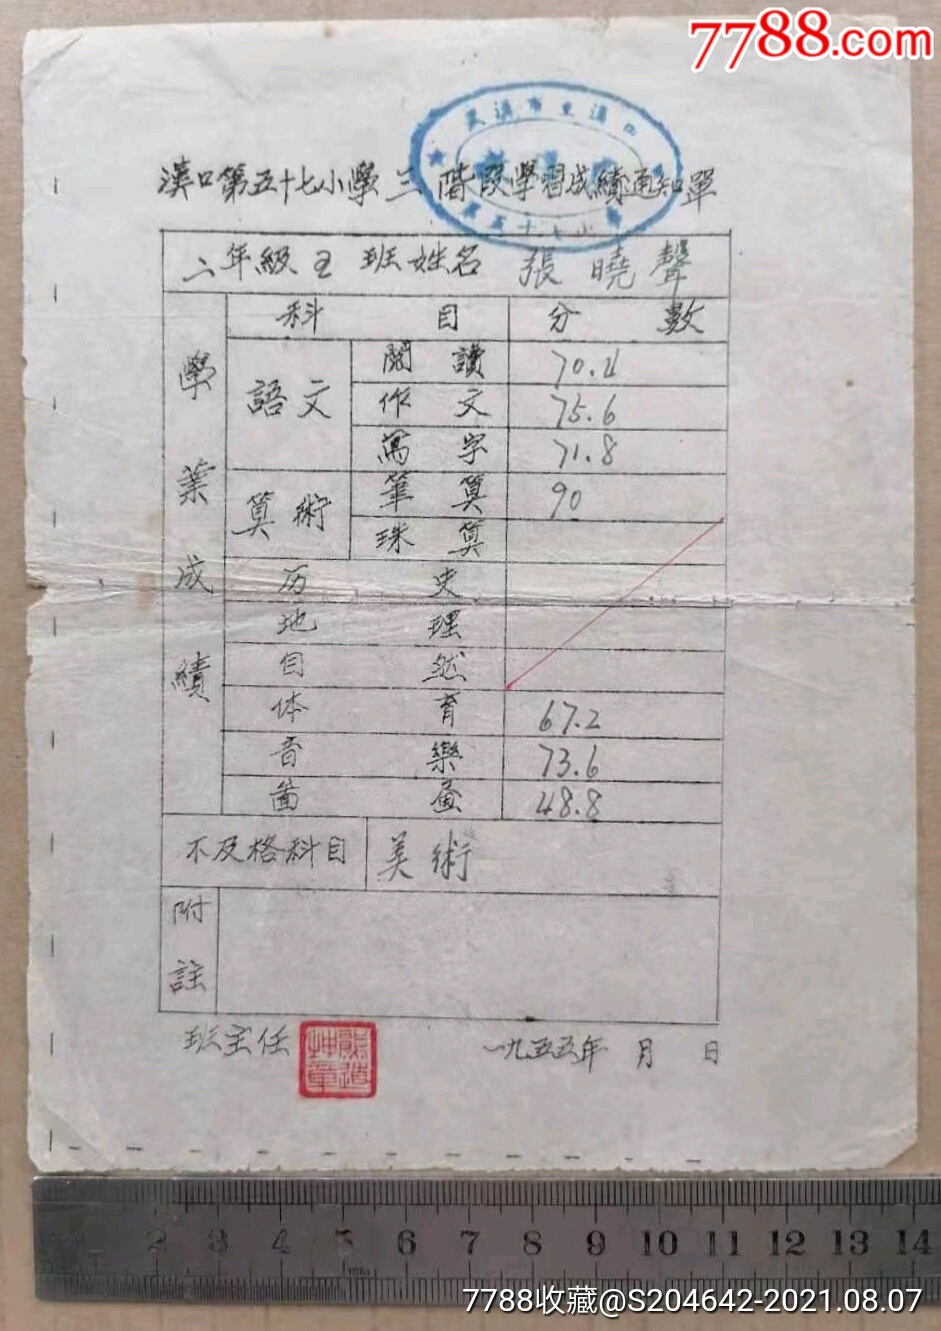 7788.com
漢口第五十七小學三階段學習成績通知單
二年級 班姓名 張曉聲
學業成績
科目 分數
語文 閱讀 70.4
作文 75.6
寫字 71.8
算術 筆算 90
珠算
历史
地理
自然
体育 67.2
音樂 73.6
圖畫 48.8
不及格科目 美術
附註
班主任
一九五五年 月 日
2 3 4 5 6 7 8 9 10 11 12 13 14
7788收藏@S204642-2021.08.07